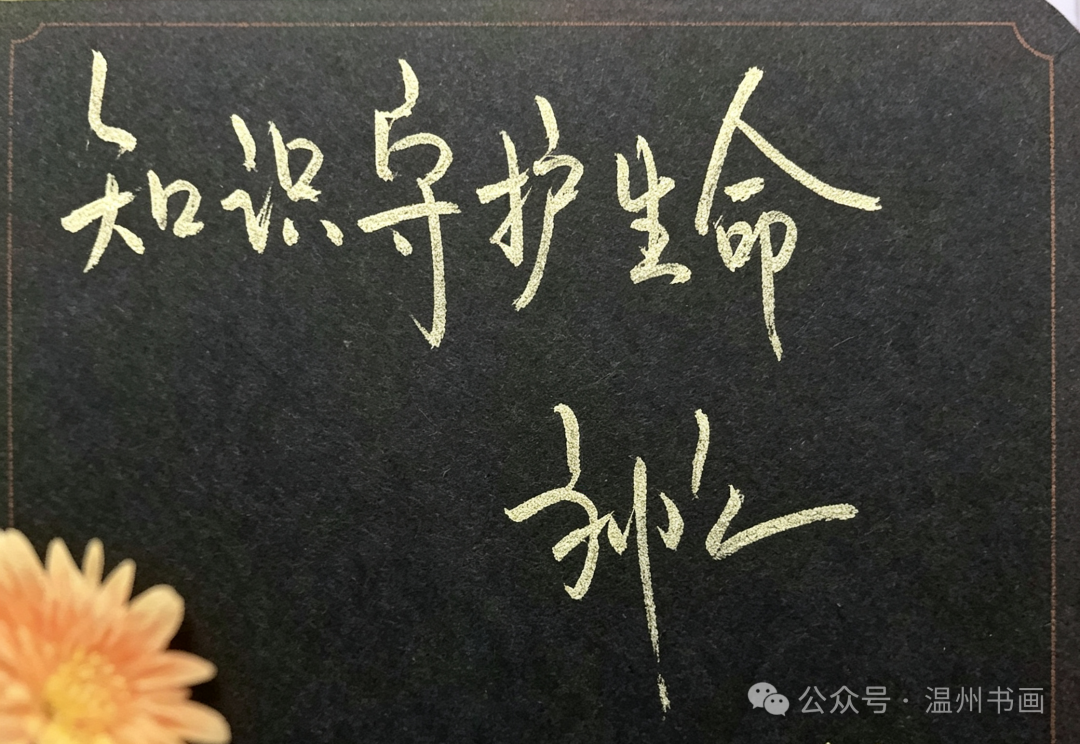 知识守护生命
公众号·温州书画